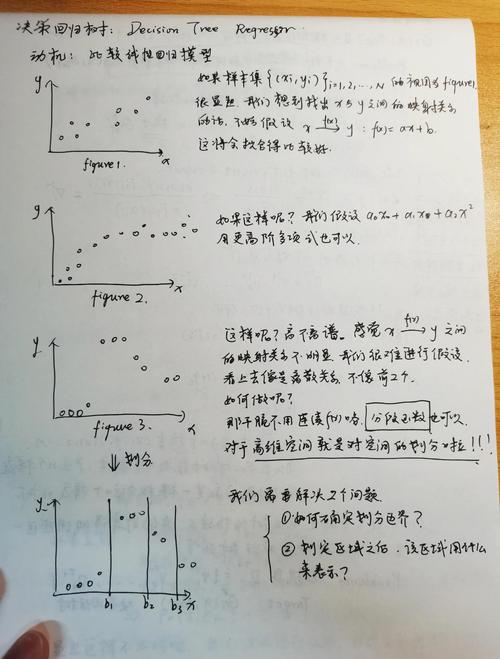 决策回归树: Decision Tree Regressor.
动机: 比较线性回归模型
y
x
figure 1.
如果样本集 {(xi, yi)} i=1,2,...,N 的视图为figure1,
很显然, 我们想到找出 x 与 y 之间的映射关系
的话, 不妨假设 x f(x)→ y : f(x)=ax+b.
这将会拟合得比较好.
y
x
figure 2.
如果这样呢? 我们假设 a0x0+a1x+a2x²
用更高阶多项式也可以.
y
x
figure 3.
这样呢? 离不离谱. 感觉 x f(x)→ y 之间
的映射关系不明显, 我们很难进行假设.
看上去像是离散关系, 不像前2个.
如何做呢?
那干脆不用连续f(x)咯, 分段函数也可以.
对于高维空间就是对空间的划分啦!!!
⇓ 划分
y
b1 b2 b3 x
我们需要解决2个问题.
① 如何确定划分边界?
② 划定区域之后, 该区域用什么
来表示?